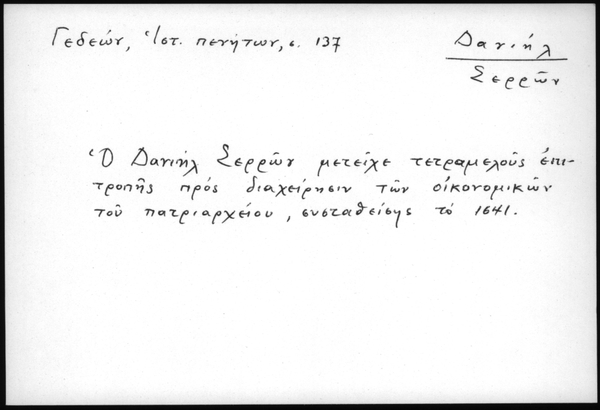 Γεδεών, Ἱστ. πενήτων, σ. 137
Δανιήλ
Σερρῶν
Ὁ Δανιήλ Σερρῶν μετεῖχε τετραμελοῦς ἐπι-
τροπῆς πρός διαχείρησιν τῶν οἰκονομικῶν
τοῦ πατριαρχείου, συσταθείσης τό 1641.